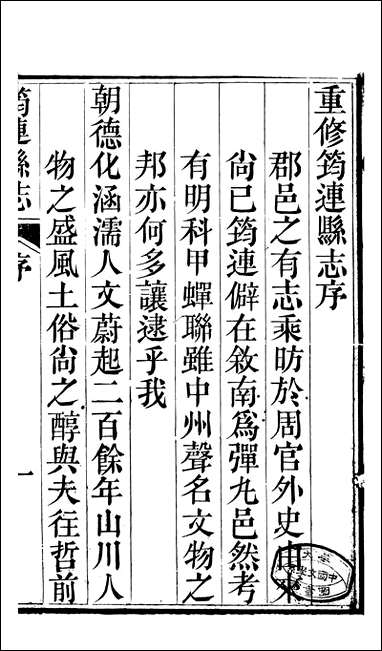 重修筠連縣志序
郡邑之有志乘昉於周官外史由來
尙已筠連僻在敘南爲彈丸邑然考
有明科甲蟬聯雖中州聲名文物之
邦亦何多讓逮乎我
朝德化涵濡人文蔚起二百餘年山川人
物之盛風土俗尙之醇與夫往哲前
筠連縣志 序 一